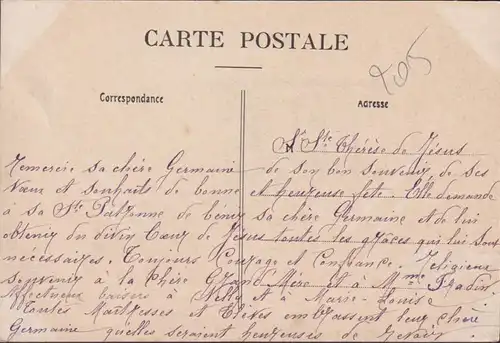 CARTE POSTALE
205
Correspondance
Adresse
Sr Ste Thérèse de Jésus
remercie sa chère Germaine de son bon souvenir, de ses
vœux et souhaits de bonne et heureuse fête. Elle demande
à sa Ste Patronne de bénir sa chère Germaine et de lui
obtenir du divin Cœur de Jésus toutes les grâces qui lui sont
nécessaires. Toujours Courage et Confiance. Religieux
souvenir à la chère Grand Mère et à Mme Fradin
Affectueux baisers à Nelly et à Marie-Louise
Toutes Maîtresses et Elèves embrassent leur chère
Germaine qu'elles seraient heureuses de revoir.